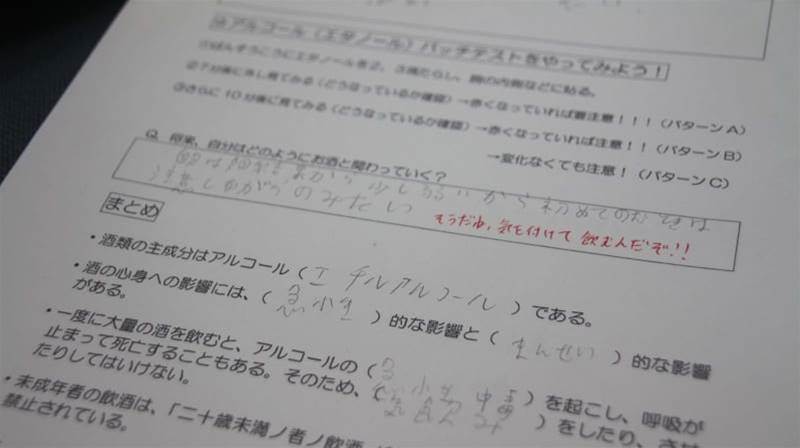 アルコール（エタノール）パッチテストをやってみよう！
①ばんそうこうにエタノールを2、3滴たらし、腕の内側などに貼る。
②7分後に外し見てみる（どうなっているか確認）→赤くなっていれば要注意！！！（パターンA）
③さらに10分後に見てみる（どうなっているか確認）→赤くなっていれば注意！！（パターンB）
→変化なくても注意！（パターンC）
Q. 将来、自分はどのようにお酒と関わっていく？
から少し弱いから初めてのむときは
注意しながらのみたい
そうだね、気を付けて飲むんだぞ!!
まとめ
・酒類の主成分はアルコール（エチルアルコール）である。
・酒の心身への影響には、（急小生）的な影響と（まんせい）的な影響
がある。
・一度に大量の酒を飲むと、アルコールの（急小生中毒）を起こし、呼吸が
止まって死亡することもある。そのため、（飲み）をしたり、させ
たりしてはいけない。
・未成年者の飲酒は、「二十歳未満ノ者ノ飲酒
禁止されている。